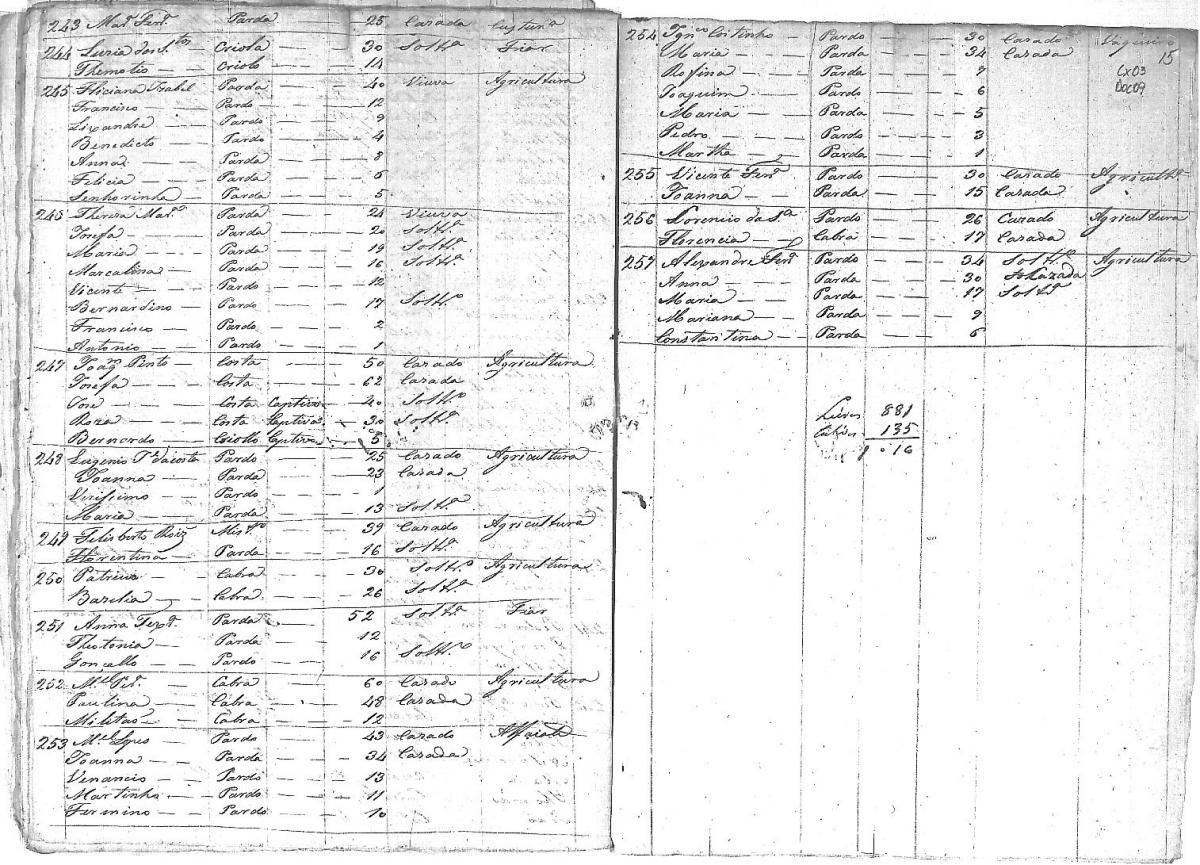 243 Mar.ª Ferr.ª — Parda — 25 Cazada Custura
244 Luzia dos S.tos Criola — 30 Solt.ª Fiar
Themotio — Criolo — 14
245 Filiciana Izabel Parda — 40 Viuva Agricultura
Francisco — Pardo — 12
Lixandre — Pardo — 9
Benedicto — Pardo — 4
Anna — Parda — 8
Felicia — Parda — 6
Senhorinha — Parda — 5
246 Thereza Mar.ª Parda — 24 Viuva
Josefa — Parda — 20 Solt.ª
Maria — Parda — 19 Solt.ª
Marcalina — Parda — 16 Solt.ª
Vicente — Pardo — 12
Bernardino — Pardo — 17 Solt.º
Francisco — Pardo — 2
Antonio — Pardo — 1
247 Joaq.m Pinto — Costa — 50 Cazado Agricultura
Josefa — Costa — 62 Cazada
Jose — Costa Captivo — 40 Solt.º
Roza — Costa Captiva — 30 Solt.ª
Bernardo — Criollo Captivo 5
248 Eugenio J.e da costa Pardo — 25 Cazado Agricultura
Joanna — Parda — 23 Cazada
Virissimo — Pardo — 1
Maria — Parda — 13 Solt.ª
249 Felisberto Roiz Mist.ço — 39 Cazado Agricultura
Florentina — Parda — 16 Solt.ª
250 Patricio — Cabra — 30 Solt.º Agricultura
Bazilia — Cabra — 26 Solt.ª
251 Anna Ferr.ª Parda — 52 Solt.ª Fiar
Theotonia — Parda — 12
Gonçallo — Pardo — 16 Solt.º
252 M.el Per.ª — Cabra — 60 Cazado Agricultura
Paulina — Cabra — 48 Cazada
Militao — Cabra — 12
253 M.el Lopes — Pardo — 43 Cazado Alfaiate
Joanna — Parda — 34 Cazada
Venancio — Pardo — 13
Martinho — Pardo — 11
Fermino — Pardo — 10
254 Ign.co Coitinho — Pardo — 30 Cazado Vaqueiro
15
Maria — Parda — 34 Cazada
Rofina — Parda — 7
Cx03
Doc09
Joaquim — Pardo — 6
Maria — Parda — 5
Pedro — Pardo — 3
Martha — Parda — 1
255 Vicente Ferr.ª Pardo — 30 Cazado Agricultr.ª
Joanna — Parda — 15 Cazada
256 Lorencio da S.ª Pardo — 26 Cazado Agricultura
Florencia — Cabra — 17 Cazada
257 Alexandre Ferr.ª Pardo — 34 Solt.º Agricultura
Anna — Parda — 30 Cazada
Maria — Parda — 17 Solt.ª
Mariana — Parda — 9
Constantina — Parda — 6
Livres 881
135
1016